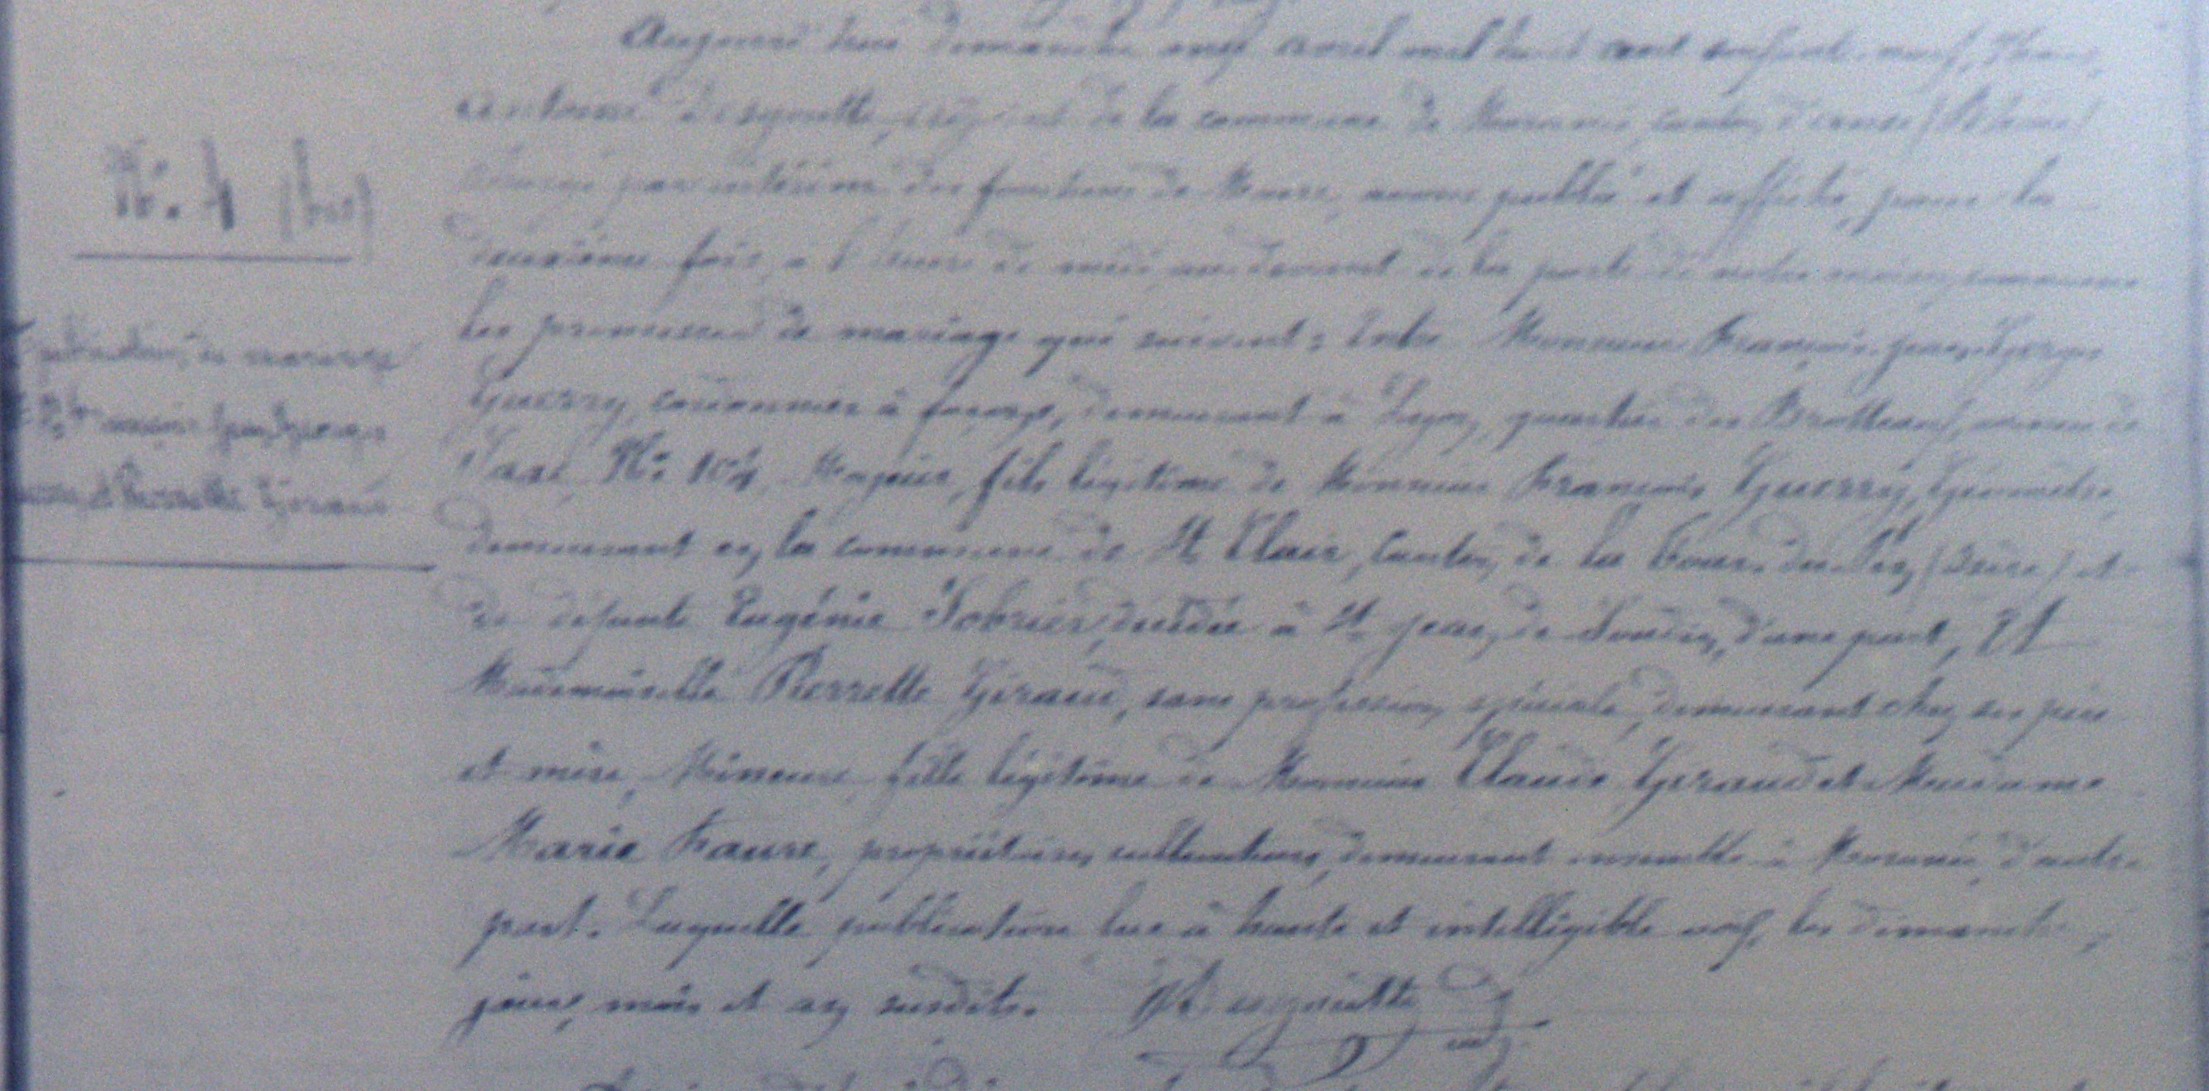 N°. 4 (bis)
publication de mariage
François Jean George
Guerry et Pierrette Giraud
Aujourd'hui dimanche onze avril mil huit cent soixante neuf, Nous,
Antoine Desgoutte, adjoint de la commune de Mornant, canton d'
par intérim des fonctions de Maire, avons publié et affiché, pour la
deuxième fois, à l'heure de midi, au devant de la porte de notre maison commune
les promesses de mariage qui suivent : Entre Monsieur François Jean George
Guerry, cordonnier à façon, demeurant à Lyon, quartier des Brotteaux, avenue de
Saxe, N°. 104, Majeur, fils légitime de Monsieur François Guerry, Géomètre,
demeurant en la commune de St Clair, Canton de la Tour-du-Pin, (Isère) et
de défunte Eugénie Sobrier, décédée à St Jean de Soudin, d'une part, Et
Mademoiselle Pierrette Giraud, sans profession spéciale, demeurant chez ses père
et mère, Mineure, fille légitime de Monsieur Claude Giraud et Madame
Marie Faure, propriétaires cultivateurs, demeurant ensemble à d'autre
part. Laquelle publication lue à haute et intelligible voix, les dimanche,
jour, mois et an susdits. Desgoutte